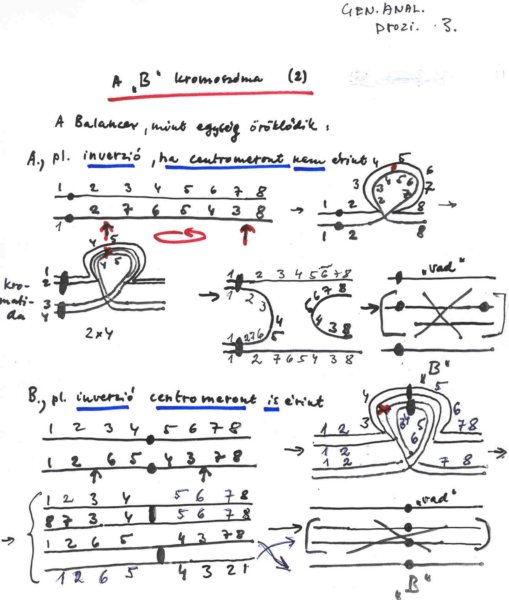 GEN. ANAL.
DROZI. 3.
A „B" kromoszóma (2)
A Balancer, mint egység öröklődik:
A., pl. inverzió, ha centromeront nem érint
1 2 3 4 5 6 7 8
1 2 7 6 5 4 3 8
1 2 3 4 5 6 7 8
1 2 3 4 5 6 7 8
4 5
4 5
1
2
3
4
kro-
mati-
da
2x4
1 2 3 4 5 6 7 8
1 2 3 4 5
6 7 8
4 3 8
1 2 7 6
1 2 7 6 5 4 3 8
„vad"
„B"
B., pl. inverzió centromeront is érint
1 2 3 4 5 6 7 8
1 2 6 5 4 3 7 8
„B"
4 5
3 6
3 4 5
6
1 2 7 8
1 2
1 2 7 8
1 2 3 4 5 6 7 8
8 7 3 4 5 6 7 8
1 2 6 5 4 3 7 8
1 2 6 5 4 3 2 1
„vad"
„B"